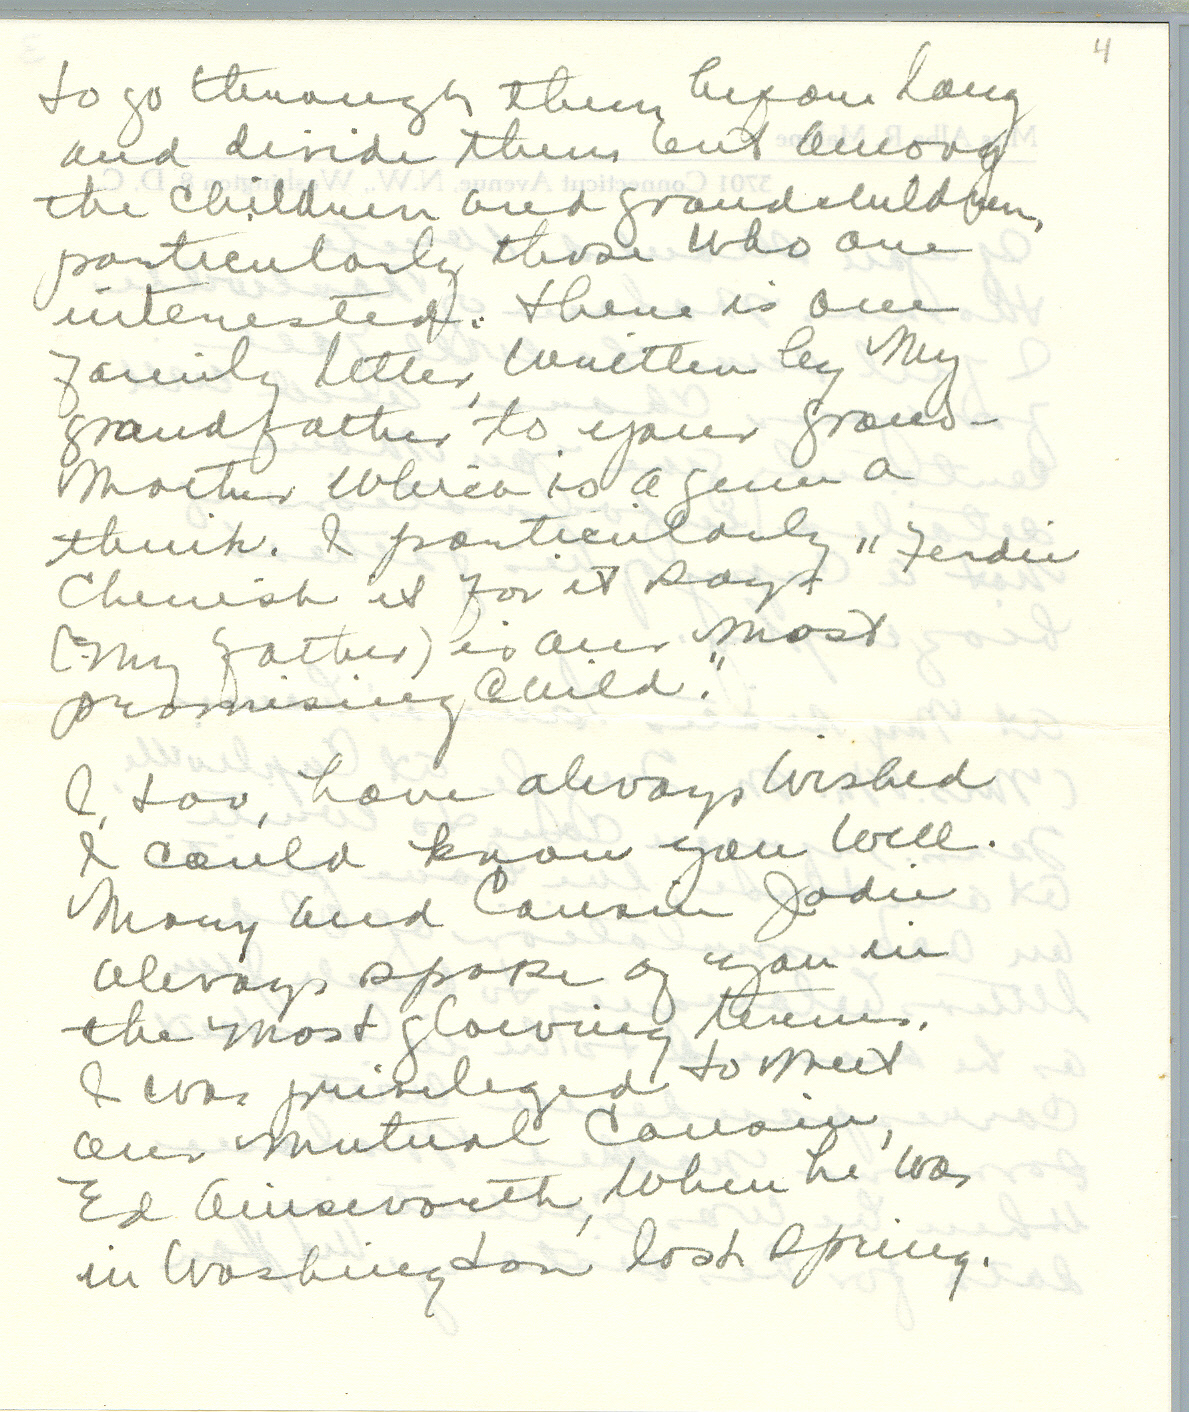 4
to go through them before long
and divide them out among
the children and grandchildren,
particularly those who are
interested. There is one
family letter, written by my
grandfather to your grand-
mother which is a gem I
think. I particularly
cherish it for it says "Ferdie
(my father) is our most
promising child."
I, too, have always wished
I could know you well.
Mary and Cousin Jodie
always spoke of you in
the most glowing terms.
I was privileged to meet
our mutual cousin,
Ed Ainsworth, when he was
in Washington last spring.